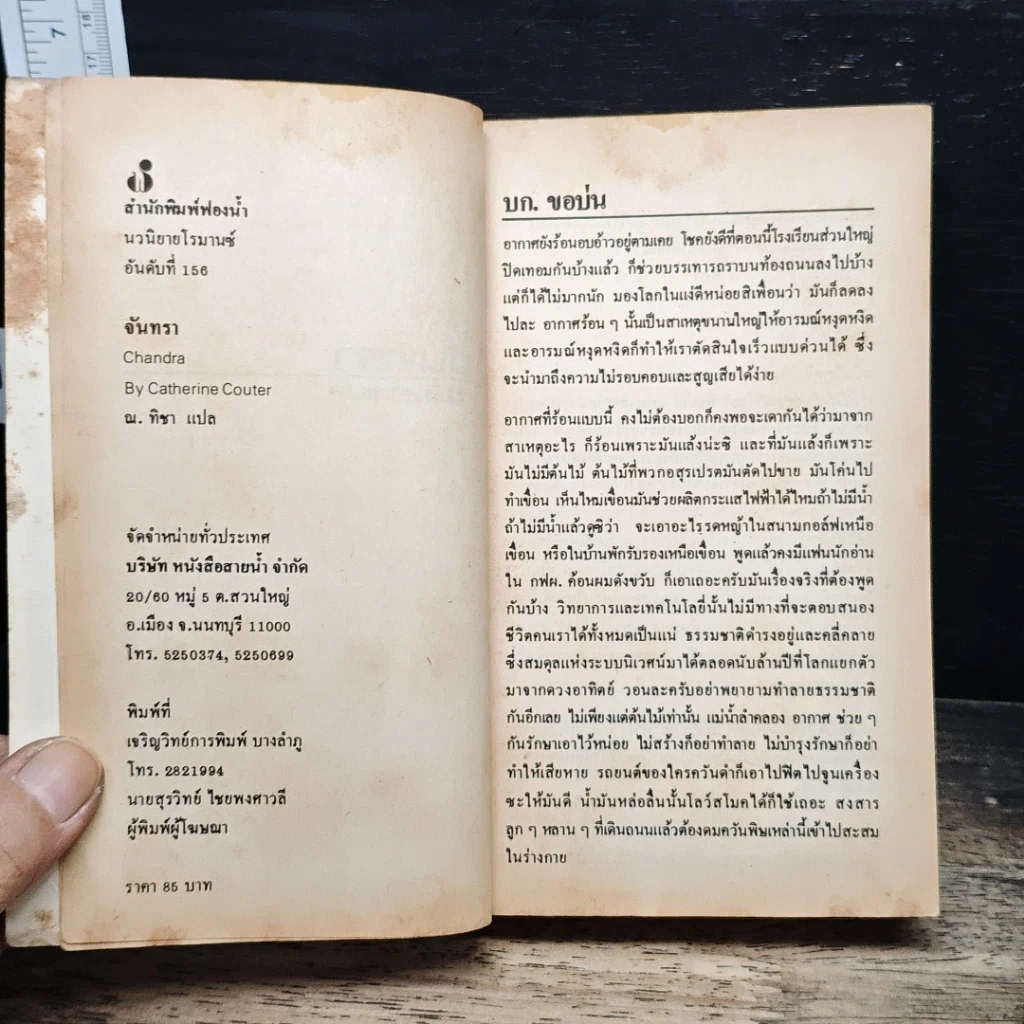 7
18
17
สำนักพิมพ์ฟองน้ำ
นวนิยายโรมานซ์
อันดับที่ 156
จันทรา
Chandra
By Catherine Couter
ณ. ทิชา แปล
จัดจำหน่ายทั่วประเทศ
บริษัท หนังสือสายน้ำ จำกัด
20/60 หมู่ 5 ต.สวนใหญ่
อ.เมือง จ.นนทบุรี 11000
โทร. 5250374, 5250699
พิมพ์ที่
เจริญวิทย์การพิมพ์ บางลำภู
โทร. 2821994
นายสุรวิทย์ ไชยพงศาวลี
ผู้พิมพ์ผู้โฆษณา
ราคา 85 บาท
บก. ขอบ่น
อากาศยังร้อนอบอ้าวอยู่ตามเคย โชคยังดีที่ตอนนี้โรงเรียนส่วนใหญ่
ปิดเทอมกันบ้างแล้ว ก็ช่วยบรรเทารถราบนท้องถนนลงไปบ้าง
แต่ก็ได้ไม่มากนัก มองโลกในแง่ดีหน่อยสิเพื่อนว่า มันก็ลดลง
ไปละ อากาศร้อน ๆ นั้นเป็นสาเหตุขนานใหญ่ให้อารมณ์หงุดหงิด
และอารมณ์หงุดหงิดก็ทำให้เราตัดสินใจเร็วแบบด่วนได้ ซึ่ง
จะนำมาถึงความไม่รอบคอบและสูญเสียได้ง่าย
อากาศที่ร้อนแบบนี้ คงไม่ต้องบอกก็คงพอจะเดากันได้ว่ามาจาก
สาเหตุอะไร ก็ร้อนเพราะมันแล้งน่ะซิ และที่มันแล้งก็เพราะ
มันไม่มีต้นไม้ ต้นไม้ที่พวกอสุรเปรตมันตัดไปขาย มันโค่นไป
ทำเขื่อน เห็นไหมเขื่อนมันช่วยผลิตกระแสไฟฟ้าได้ไหมถ้าไม่มีน้ำ
ถ้าไม่มีน้ำแล้วดูซิว่า จะเอาอะไรรดหญ้าในสนามกอล์ฟเหนือ
เขื่อน หรือในบ้านพักรับรองเหนือเขื่อน พูดแล้วคงมีแฟนนักอ่าน
ใน กฟผ. ค้อนผมดังขวับ ก็เอาเถอะครับมันเรื่องจริงที่ต้องพูด
กันบ้าง วิทยาการและเทคโนโลยี่นั้นไม่มีทางที่จะตอบสนอง
ชีวิตคนเราได้ทั้งหมดเป็นแน่ ธรรมชาติดำรงอยู่และคลี่คลาย
ซึ่งสมดุลแห่งระบบนิเวศน์มาได้ตลอดนับล้านปีที่โลกแยกตัว
มาจากดวงอาทิตย์ วอนละครับอย่าพยายามทำลายธรรมชาติ
กันอีกเลย ไม่เพียงแต่ต้นไม้เท่านั้น แม่น้ำลำคลอง อากาศ ช่วย ๆ
กันรักษาเอาไว้หน่อย ไม่สร้างก็อย่าทำลาย ไม่บำรุงรักษาก็อย่า
ทำให้เสียหาย รถยนต์ของใครควันดำก็เอาไปฟิตไปจูนเครื่อง
ซะให้มันดี น้ำมันหล่อลื่นนั้นโลว์สโมคได้ก็ใช้เถอะ สงสาร
ลูก ๆ หลาน ๆ ที่เดินถนนแล้วต้องดมควันพิษเหล่านี้เข้าไปสะสม
ในร่างกาย